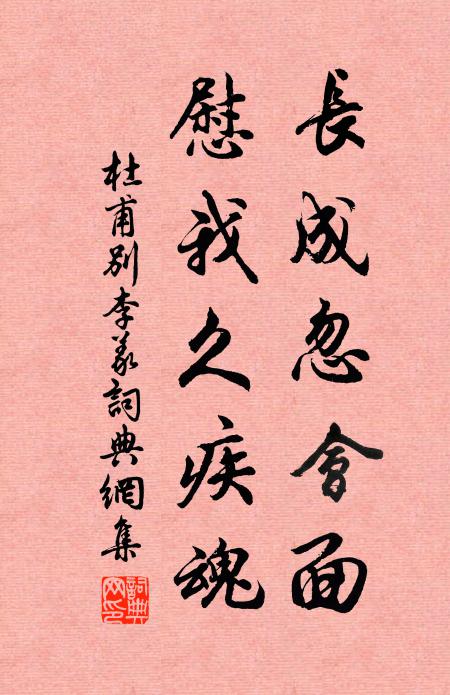 長成忽會面
慰我久疾魂
杜甫別李義詞典網集
詞典
網印